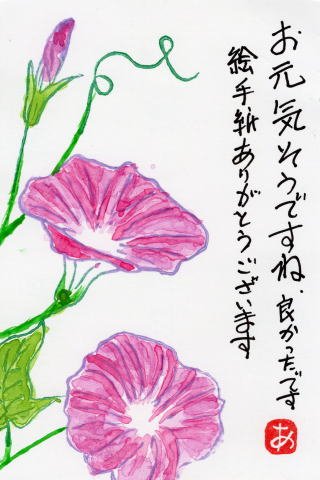 お元気そうですね、良かったです
絵手紙ありがとうございます
あ